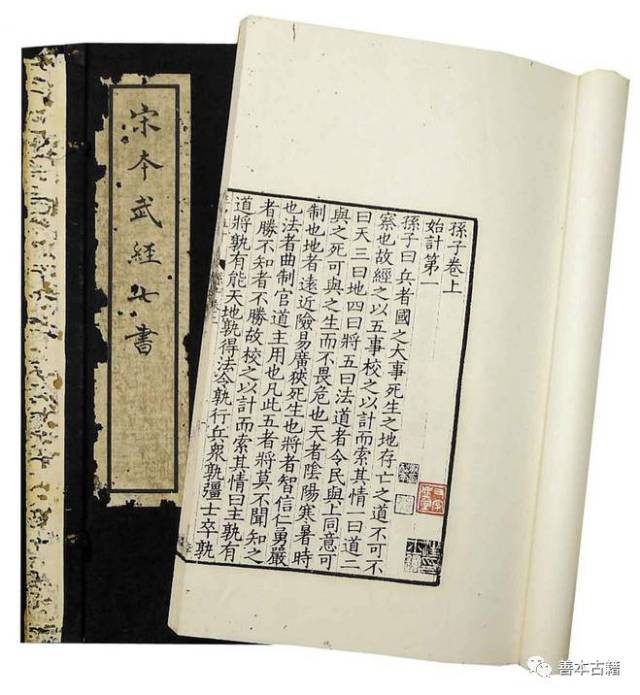 宋本武經七書
孫子卷上
始計第一
孫子曰兵者國之大事死生之地存亡之道不可不
察也故經之以五事校之以計而索其情一曰道二
曰天三曰地四曰將五曰法道者令民與上同意可
與之死可與之生而不畏危也天者陰陽寒暑時
制也地者遠近險易廣狹死生也將者智信仁勇嚴
也法者曲制官道主用也凡此五者將莫不聞知之
者勝不知者不勝故校之以計而索其情曰主孰有
道將孰有能天地孰得法令孰行兵衆孰彊士卒孰
善本古籍